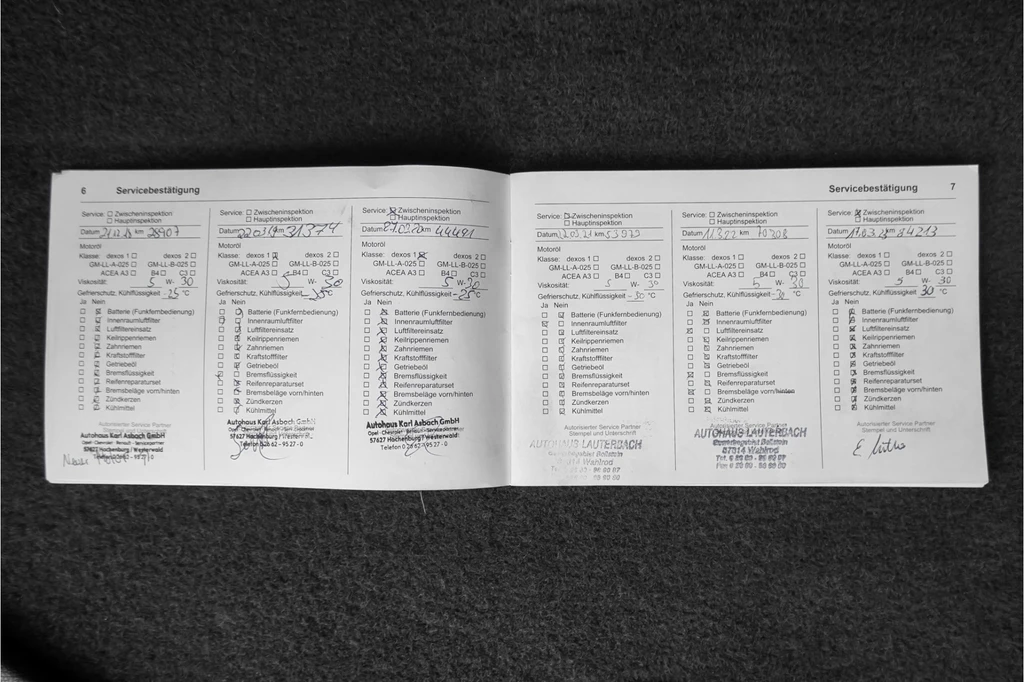 6 Servicebestätigung
Service: ☐ Zwischeninspektion
☐ Hauptinspektion
Datum km 28907
Motoröl
Klasse: dexos 1 ☐ dexos 2 ☐
GM-LL-A-025 ☐ GM-LL-B-025 ☐
ACEA A3 ☐ B4 ☐ C3 ☐
Viskosität: 5 W- 30
Gefrierschutz, Kühlflüssigkeit -25 °C
Ja Nein
☐ ☒ Batterie (Funkfernbedienung)
☐ ☒ Innenraumluftfilter
☐ ☒ Luftfiltereinsatz
☐ ☒ Keilrippenriemen
☐ ☒ Zahnriemen
☐ ☒ Kraftstofffilter
☐ ☒ Getriebeöl
☐ ☒ Bremsflüssigkeit
☐ ☒ Reifenreparaturset
☐ ☒ Bremsbeläge vorn/hinten
☐ ☒ Zündkerzen
☐ ☒ Kühlmittel
Autorisierter Service Partner
Autohaus Karl Asbach GmbH
57627 Hachenburg / Westerwald
Service: ☐ Zwischeninspektion
☐ Hauptinspektion
Datum 22.03.19 km 31374
Motoröl
Klasse: dexos 1 ☒ dexos 2 ☐
GM-LL-A-025 ☐ GM-LL-B-025 ☐
ACEA A3 ☐ B4 ☐ C3 ☐
Viskosität: 5 W- 30
Gefrierschutz, Kühlflüssigkeit °C
Ja Nein
Batterie (Funkfernbedienung)
Innenraumluftfilter
Luftfiltereinsatz
Keilrippenriemen
Zahnriemen
Kraftstofffilter
Getriebeöl
Bremsflüssigkeit
Reifenreparaturset
Bremsbeläge vorn/hinten
Zündkerzen
Kühlmittel
Autohaus Karl Asbach GmbH
57627 Hachenburg
Telefon 0 26 62 - 95 27 - 0
Service: ☒ Zwischeninspektion
☐ Hauptinspektion
Datum 27.03.20 km 44491
Motoröl
Klasse: dexos 1 ☒ dexos 2 ☐
GM-LL-A-025 ☐ GM-LL-B-025 ☐
ACEA A3 ☐ B4 ☐ C3 ☐
Viskosität: 5 W- 30
Gefrierschutz, Kühlflüssigkeit -25 °C
Ja Nein
☐ ☒ Batterie (Funkfernbedienung)
☐ ☒ Innenraumluftfilter
☐ ☒ Luftfiltereinsatz
☐ ☒ Keilrippenriemen
☐ ☒ Zahnriemen
☐ ☒ Kraftstofffilter
☐ ☒ Getriebeöl
☐ ☒ Bremsflüssigkeit
☐ ☒ Reifenreparaturset
☐ ☒ Bremsbeläge vorn/hinten
☐ ☒ Zündkerzen
☐ ☒ Kühlmittel
Autohaus Karl Asbach GmbH
57627 Hachenburg / Westerwald
Telefon 0 26 62 - 95 27 - 0
Servicebestätigung 7
Service: Zwischeninspektion
☐ Hauptinspektion
Datum km 53979
Motoröl
Klasse: dexos 1 ☐ dexos 2 ☐
GM-LL-A-025 ☐ GM-LL-B-025 ☐
ACEA A3 ☐ B4 ☐ C3 ☐
Viskosität: 5 W- 30
Gefrierschutz, Kühlflüssigkeit -30 °C
Ja Nein
☐ ☒ Batterie (Funkfernbedienung)
☒ ☐ Innenraumluftfilter
Luftfiltereinsatz
Keilrippenriemen
Zahnriemen
Kraftstofffilter
Getriebeöl
Bremsflüssigkeit
Reifenreparaturset
Bremsbeläge vorn/hinten
Zündkerzen
Kühlmittel
Autorisierter Service Partner
Stempel und Unterschrift
AUTOHAUS LAUTERBACH
Wahlrod
Service: ☐ Zwischeninspektion
☐ Hauptinspektion
Datum 11.3.22 km 70708
Motoröl
Klasse: dexos 1 ☐ dexos 2 ☐
GM-LL-A-025 ☐ GM-LL-B-025 ☐
ACEA A3 ☐ B4 ☐ C3
Viskosität: 5 W- 30
Gefrierschutz, Kühlflüssigkeit -30 °C
Ja Nein
Batterie (Funkfernbedienung)
Innenraumluftfilter
Luftfiltereinsatz
Keilrippenriemen
Zahnriemen
Kraftstofffilter
Getriebeöl
Bremsflüssigkeit
Reifenreparaturset
Bremsbeläge vorn/hinten
Zündkerzen
Kühlmittel
Autorisierter Service Partner
AUTOHAUS LAUTERBACH
57614 Wahlrod
Service: ☒ Zwischeninspektion
☐ Hauptinspektion
Datum 17.03.23 km 84213
Motoröl
Klasse: dexos 1 ☐ dexos 2 ☐
GM-LL-A-025 ☐ GM-LL-B-025 ☐
ACEA A3 ☐ B4 ☐ C3
Viskosität: 5 W- 30
Gefrierschutz, Kühlflüssigkeit 30 °C
Ja Nein
☐ ☒ Batterie (Funkfernbedienung)
☐ ☒ Innenraumluftfilter
☐ ☒ Luftfiltereinsatz
☐ ☒ Keilrippenriemen
☐ ☒ Zahnriemen
☐ ☒ Kraftstofffilter
☐ ☒ Getriebeöl
☐ ☒ Bremsflüssigkeit
☐ ☒ Reifenreparaturset
☐ ☒ Bremsbeläge vorn/hinten
☐ ☒ Zündkerzen
☐ ☒ Kühlmittel
Autorisierter Service Partner
Stempel und Unterschrift